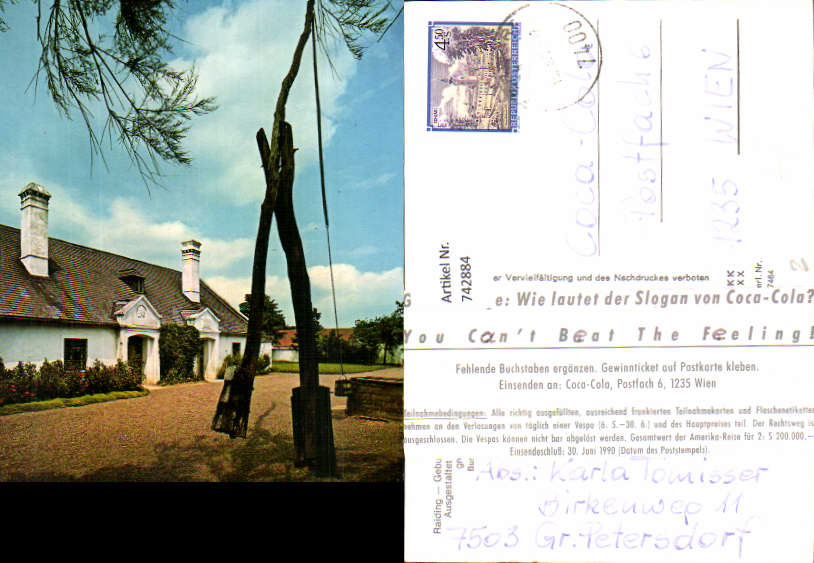 4.50
S
REPUBLIK ÖSTERREICH
7400
Coca-Cola
Postfach 6
1235 WIEN
Artikel Nr.
742884
er Vervielfältigung und des Nachdruckes verboten
KK
XX
erl.Nr.
7464
2
G e: Wie lautet der Slogan von Coca-Cola?
You Can't Beat The Feeling!
Fehlende Buchstaben ergänzen. Gewinnticket auf Postkarte kleben.
Einsenden an: Coca-Cola, Postfach 6, 1235 Wien
Teilnahmebedingungen: Alle richtig ausgefüllten, ausreichend frankierten Teilnahmekarten und Flaschenetiketten
nehmen an den Verlosungen von täglich einer Vespa (6. 5.–30. 6.) und des Hauptpreises teil. Der Rechtsweg is
ausgeschlossen. Die Vespas können nicht bar abgelöst werden. Gesamtwert der Amerika-Reise für 2: S 200.000,–
Einsendeschluß: 30. Juni 1990 (Datum des Poststempels).
Raiding — Gebu
Ausgestaltet
gh
Bur
Abs.: Karla Tomisser
Birkenweg 11
7503 Gr. Petersdorf